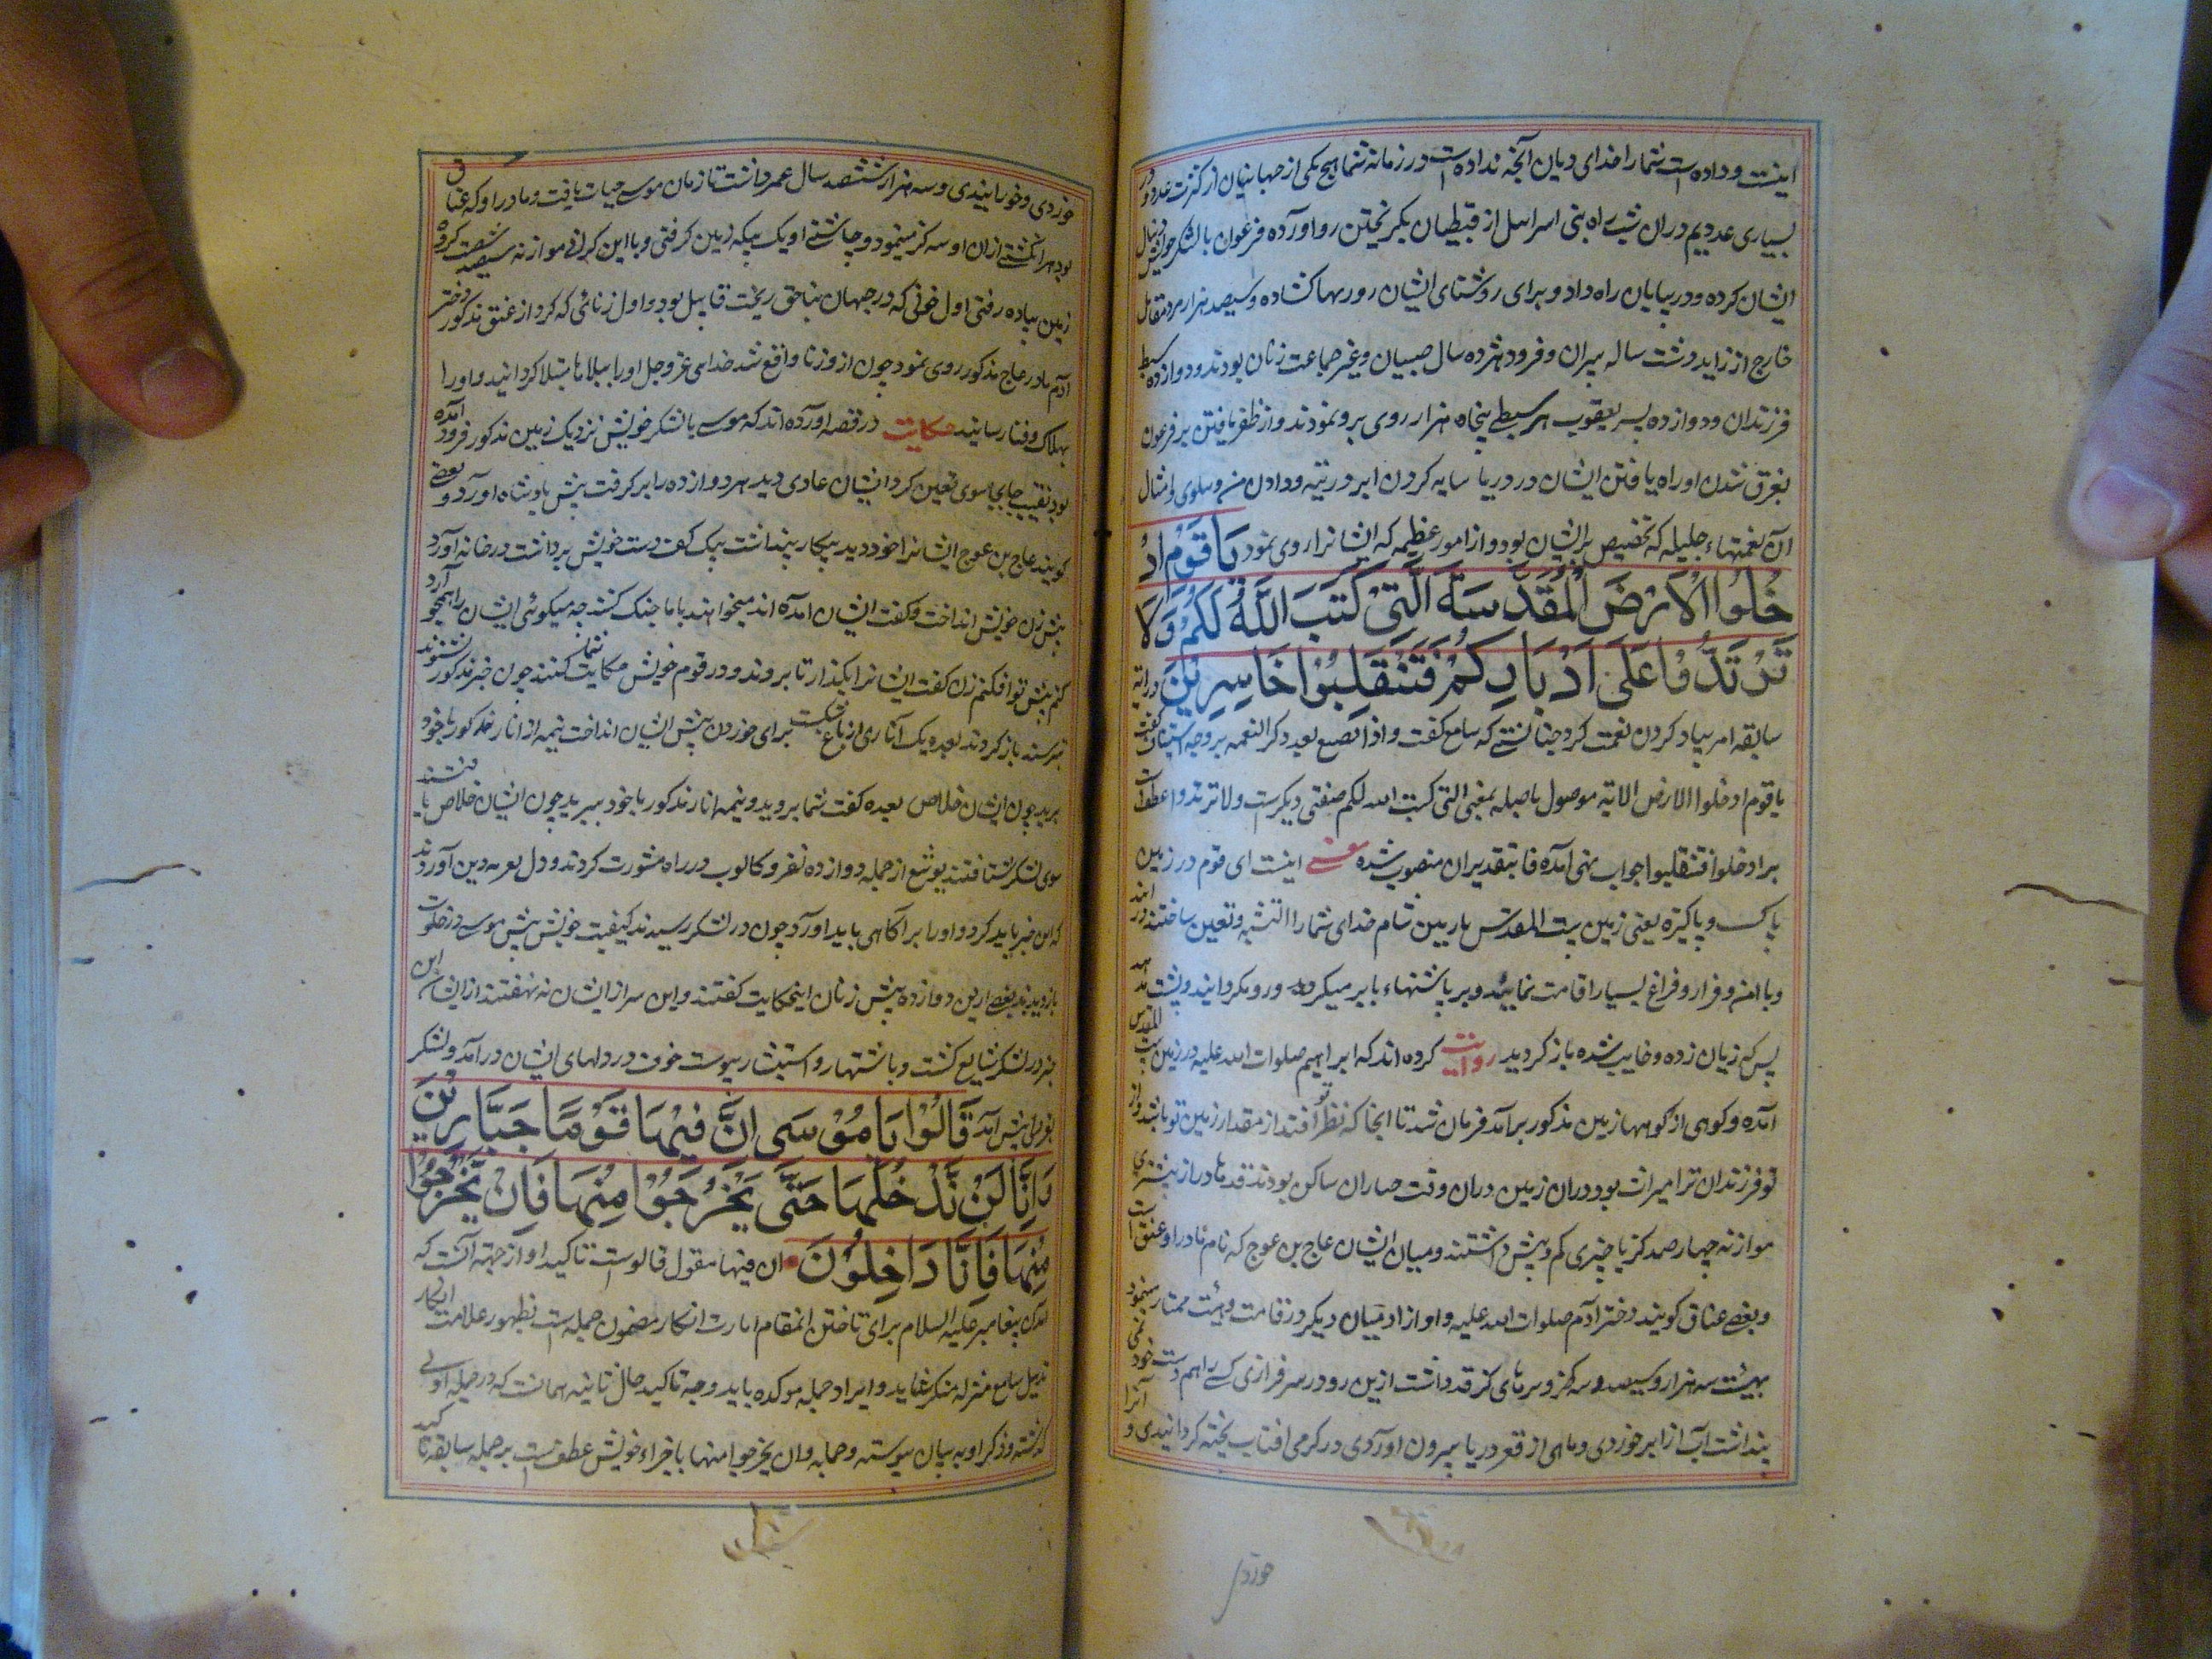 اینست و داده است شما را خدای و بان آنچه نداده است در زمانه شما هیچ یکی از جهانیان از کثرت عدد و در
بسیاری عددیم دران شب راه بنی اسرائیل از قبطیان بگریختن رو آورده فرعون با لشکر خویش دنبال
ایشان کرده و در بیابان راه داد و برای روشنای ایشان رو رها کشاده و سیصد هزار مرد مقابل
خارج از زاید و شت ساله پیران و فرود هژده سال صبیان و غیر جماعت زنان بودند و دوازده سبط
فرزندان و دوازده پسر یعقوب هر سبطی پنجاه هزار روی برو نمودند و از ظفر یافتن بر فرعون
بغرق شدن او راه یافتن ایشان در دریا سایه کردن ابر در تیه و دادن من و سلوی و امثال
آن نعمتهاء جلیله که تخصیص بر ایشان بود و از امور عظیمه که ایشانرا روی نمود یَا قَوْمِ ادْ
خُلُوا الْاَرْضَ الْمُقَدَّسَةَ الَّتِیْ كَتَبَ اللّٰهُ لَكُمْ وَلَا
تَرْتَدُّوْا عَلَى اَدْبَارِكُمْ فَتَنْقَلِبُوْا خَاسِرِیْنَ در آیه
سابقه امر بیاد کردن نعمت کرد چنانستی که سامع گفت و اذا نصنع بعد ذکر النعمه بر وجه استیناف گفت
یا قوم ادخلوا الارض الایه موصول با صله بمعنی التی کتب الله لکم صفتی دیگرست و لا ترتدوا عطف است
بر ادخلوا فتنقلبوا جواب نهی آمده فا بتقدیر ان منصوب شده معنی اینست ای قوم در زمین
پاک و پاکیزه یعنی زمین بیت المقدس یا زمین شام خدای شما را نبشته و تعین ساخته در ایند
و با امن و فرار و فراغ بسیار اقامت نمائید و بر پاشنهاء بابر میگرد و رو مگردانید و پشت مدهید
پس که زیان زده و خایب شده باز گردید روایت کرده اند که ابراهیم صلوات الله علیه در زمین بیت المقدس
آمده و کوهی از کوهها زمین مذکور برآمد فرمان شد تا انجا که نظر تو افتد از مقدار زمین تو باشد و از
تو فرزندان ترا میراث بود و دران زمین دران وقت جباران ساکن بودند قدها دراز بیشتری
موازنه چهار صد گز یا چیزی کم و بیش داشتند و میان ایشان عاج بن عوج که نام مادر او عنق است
و بعضی عناق گویند دختر آدم صلوات الله علیه و او از ادمیان دیگر در قامت و هیئت ممتاز مینمود
بهیئت سه هزار و سیصد و سه گز و سرهای گز قد داشت ازین رو در سرفرازی کسی را هم دست خود نمی
پنداشت آب از ابر خوردی و ماهی از قعر دریا بیرون آوردی در گرمی افتاب پخته گردانیدی و آنرا
خوردی
خوردی و خورانیدی و سه هزار ششصد سال عمر داشت تا زمان موسی حیات یافت و مادر او که عناق
بود هر انگشتی ازان او سه گز مینمود و چاشنی او یک بیگه زمین گرفتی و با این گرانی موازنه سیصد شصت گروه
زمین پیاده رفتی اول خونی که در جهان بناحق ریخت قابیل بود و اول زنائی که کرد از عنق مذکور دختر
آدم مادر عاج مذکور روی نمود چون از و زنا واقع شد خدای عز و جل او را ببلاها مبتلا گردانید و او را
بهلاک و فنا رسانید حکایت در قصه آورده اند که موسی با لشکر خویش نزدیک زمین مذکور فرود آمده
بود نقیب جابجا سوی تعین کرد ایشان عادی دید هر دوازده را بر گرفت پیش پادشاه آورد و بعضی
گویند عاج بن عوج ایشانرا خود دید بیکار پنداشت بیک کف دست خویش برداشت در خانه آورد
پیش زن خویش انداخت و گفت ایشان آمده اند میخواهند با ما جنگ کنند چه میگوئی ایشان را همچو آرد
کنم پیش تو افکنم زن گفت ایشانرا بگذار تا بروند و در قوم خویش حکایت شما کنند چون خبر مذکور بشنوند
بترسند باز گردند بعده یک آناری از باغ شکست برای خوردن پیش ایشان انداخت نیمه از انار مذکور با خود
برید چون ایشان خلاص بعده گفت شما بروید و نیمه انار مذکور با خود ببرید چون ایشان خلاص یافتند
سوی لشکر شتافتند یوشع از جمله دوازده نفر و کالوب در راه مشورت کردند و دل بعر به دین آوردند
که این خبر باید کرد و او را بر آگاهی باید آورد چون در لشکر رسیدند کیفیت خویش پیش موسی در خلوت
باز دیدند بعضی ازین دوازده پیش زنان اینحکایت گفتند و این سر از ایشان نه نهفتند از ایشان این
خبر در لشکر شایع گشت و باشتهار و استیناث پیوست خوف در دلهای ایشان در آمد و لشکر
بقول پیش آمد قَالُوْا یَا مُوْسَى اِنَّ فِیْهَا قَوْمًا جَبَّارِیْنَ
وَاِنَّا لَنْ نَّدْخُلَهَا حَتَّى یَخْرُجُوْا مِنْهَا فَاِنْ یَّخْرُجُوْا
مِنْهَا فَاِنَّا دَاخِلُوْنَ ان فیها مقول قالوست تاکید او از جهة آنست که
آمدن پیغامبر علیه السلام برای تاختن انمقام امارت انکار مضمون جمله است بظهور علامت انکار
تنزیل سامع منزله منکر نماید و ایراد جمله موکده باید وجه تاکید حال ثانیه همانست که در جمله اولی
گذشته و ذکر او به بیان پیوسته و حمایه و ان یخرجوا منها با جزاء خویش عطف است بر جمله سابقه تاکید